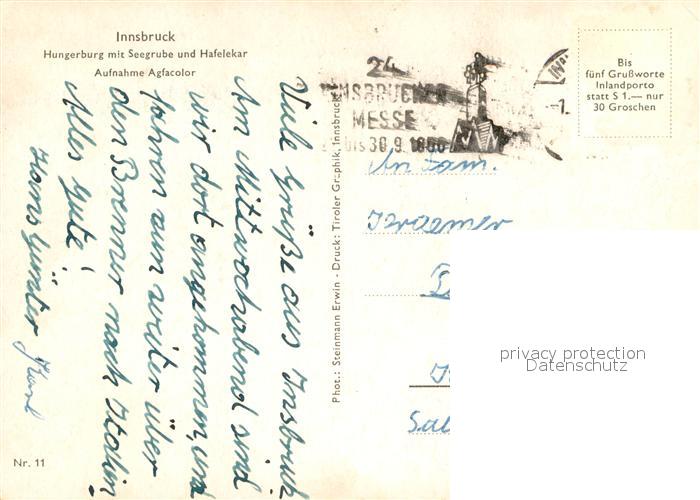 Innsbruck
Hungerburg mit Seegrube und Hafelekar
Aufnahme Agfacolor
Viele Grüße aus Innsbruck
Am Mittwochabend sind
wir dort angekommen, und
fahren nun weiter über
den Brenner nach Italien
Alles Gute!
Hans Günter
Nr. 11
Phot.: Steinmann Erwin - Druck: Tiroler Graphik, Innsbruck
24.
INNSBRUCKER
MESSE
bis 30.9.
Bis
fünf Grußworte
Inlandporto
statt S 1.— nur
30 Groschen
An Fam.
Kraemer
privacy protection
Datenschutz